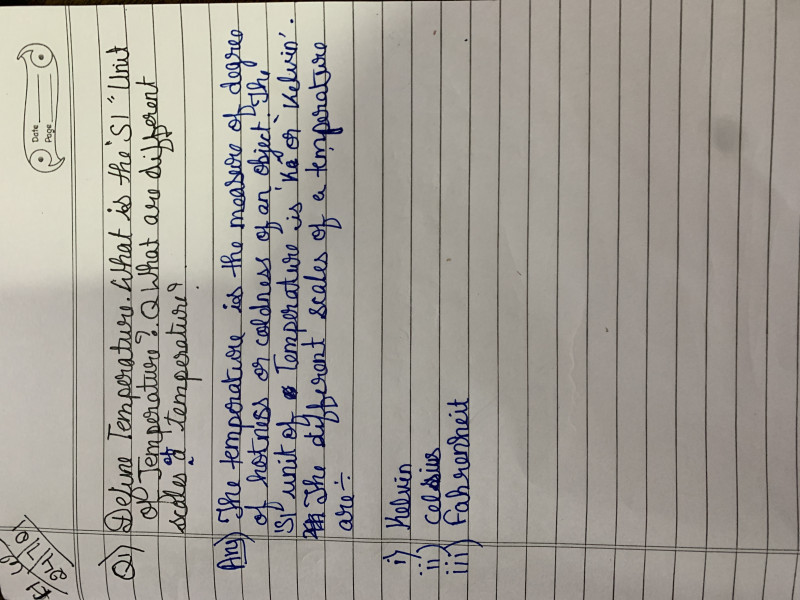 Date
Page
24/7/01
Q1) Define Temperature. What is the "SI" Unit
of Temperature? Q What are different
scales of a temperature?
Ans) The temperature is the measure of degree
of hotness or coldness of an object. The
'SI' unit of Temperature is 'Ke or 'Kelvin'.
The different scales of a temperature
are÷
i) Kelvin
ii) Celsius
iii) Fahrenheit